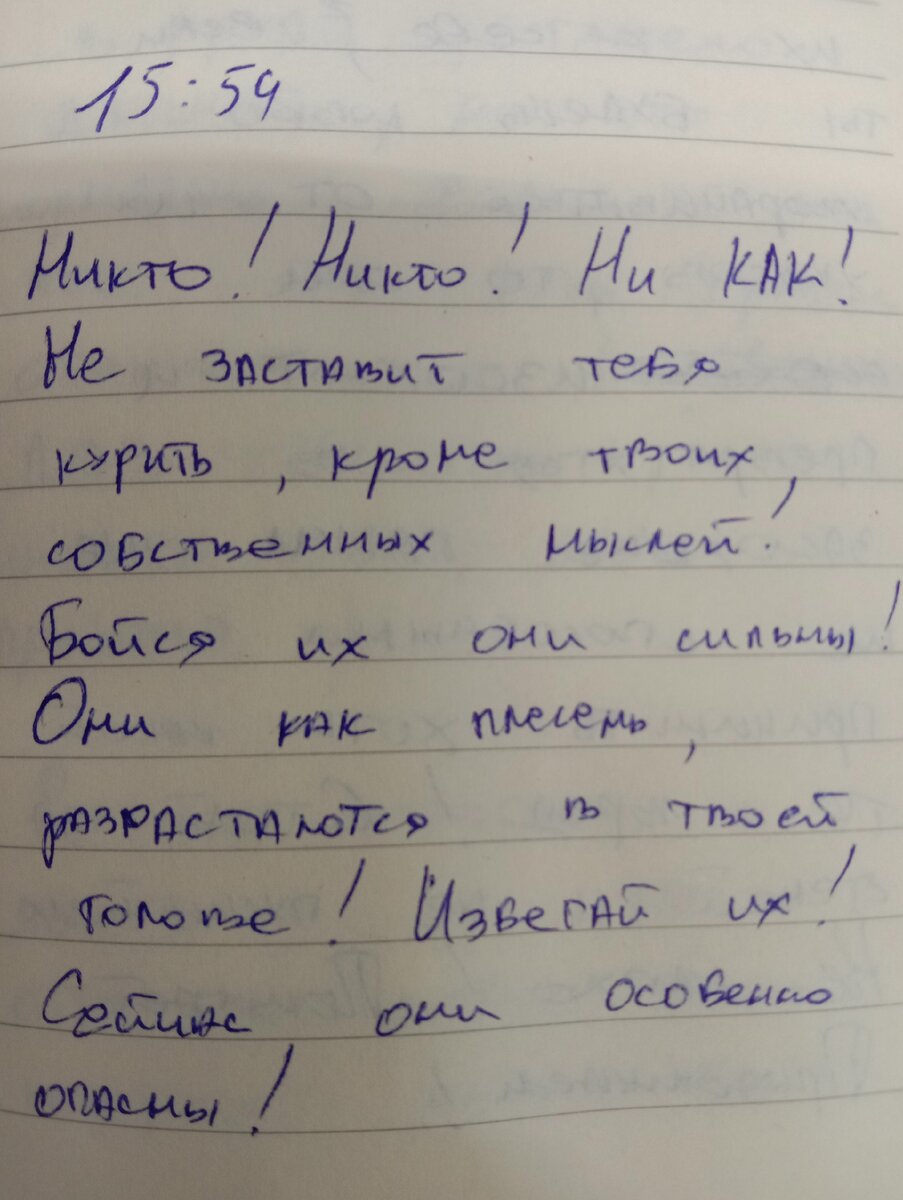 15:54
Никто! Никто! Ни КАК!
Не заставит тебя
курить, кроме твоих,
собственных мыслей!
Бойся их они сильны!
Они как плесень,
разрастаются в твоей
голове! Извегай их!
Сейчас они особенно
опасны!